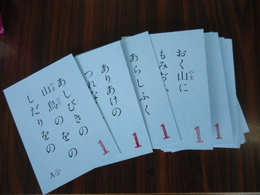 あしびきの
山鳥の尾の
しだりをの
A①
ありあけの
つれな
1
あらしふく
1
おく山に
もみぢ
1
1